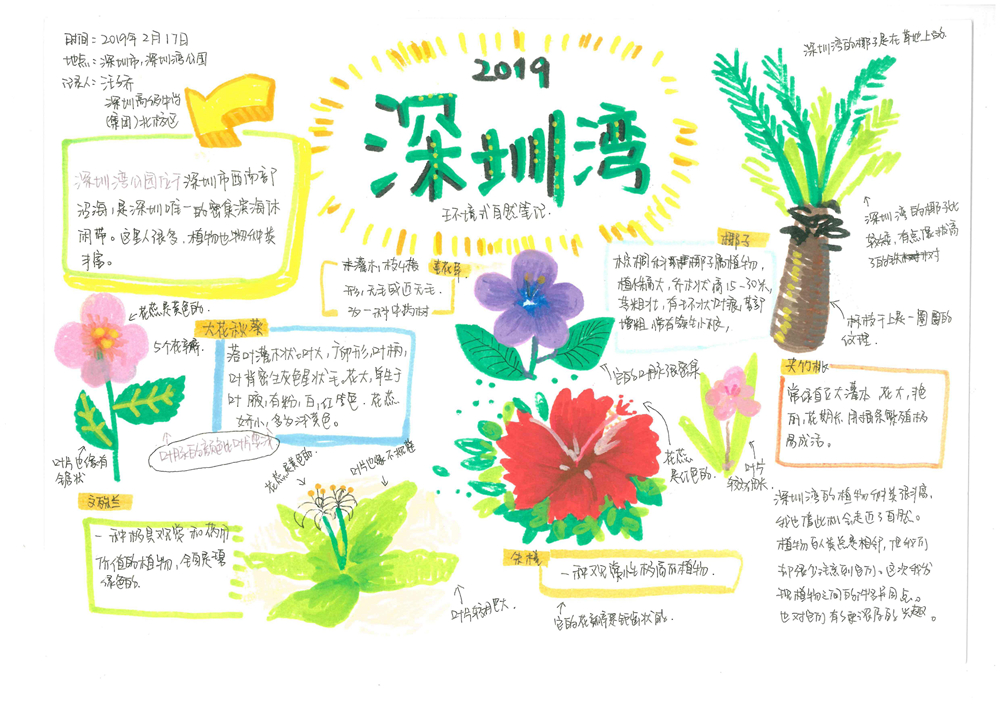 时间：2019年2月17日
地点：深圳市，深圳湾公园
记录人：汪乔
深圳高级中学
(集团)北校区
2019
深圳湾
王环境式自然笔记
深圳湾的椰子是在草地上的
深圳湾公园位于深圳市西南部
沿海，是深圳唯一的密集滨海休
闲带。这里人很多、植物也物种类
丰富。
深圳湾的椰子比
较矮，有点像拔高
了的铁树
树枝干上是一圈圈的
纹理.
椰子
棕榈科椰子属植物，
植株高大，乔木状高15-30米，
茎粗壮，有环状叶痕，基部
增粗，常有簇生小根，
花蕊是黄色的.
5个花瓣
叶片也像有
锯状
大花秋葵
落叶灌木状，叶大，卵形，叶柄，
叶背密生灰色星状毛，花大，单生于
叶腋，有粉，白，红，紫色.花蕊
娇小，多为浅黄色。
它的叶脉很密集
夹竹桃
常绿直立大灌木 花大，艳
丽，花期长，用插条繁殖极
易成活。
叶片
较为细长.
花蕊
是红色的.
朱槿
一种观赏性极高的植物.
文殊兰
一种极具观赏和药用
价值的植物，全身是翠
绿色的.
花蕊是黄色的.
叶片较肥大.
深圳湾的植物种类很广，
我也借此机会走近了自然。
植物与人类总是相邻，但我们
却很少注意到它们、这次我发
现植物之间的许多异同点。
也对它们有了更浓厚的兴趣。